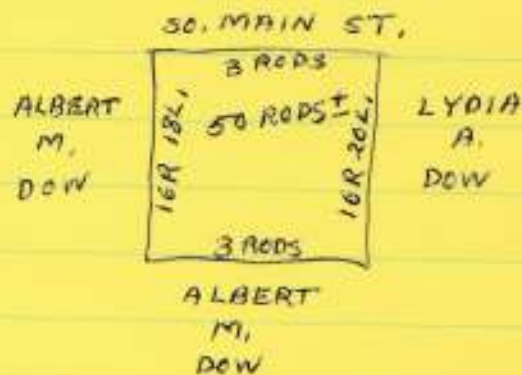 SO. MAIN ST.
3 RODS
ALBERT
M.
DOW
16R 18L.
50 RODS ±
16R 20L.
LYDIA
A.
DOW
3 RODS
ALBERT
M.
DOW